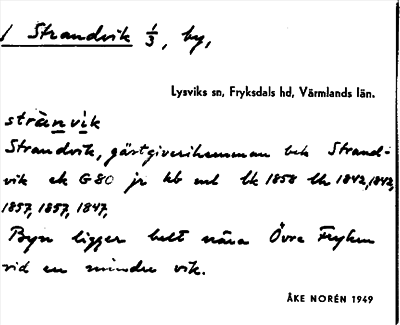 / Strandvik 1/3, by,
Lysviks sn, Fryksdals hd, Värmlands län.
strànvik
Strandvik, gästgiverihemman bek Strand-
vik ek G80 jr kb ml lk 1858 lh 1842, 1842,
1857, 1857, 1847,
Byn ligger helt nära Övre Fryken
vid en mindre vik.
ÅKE NORÉN 1949